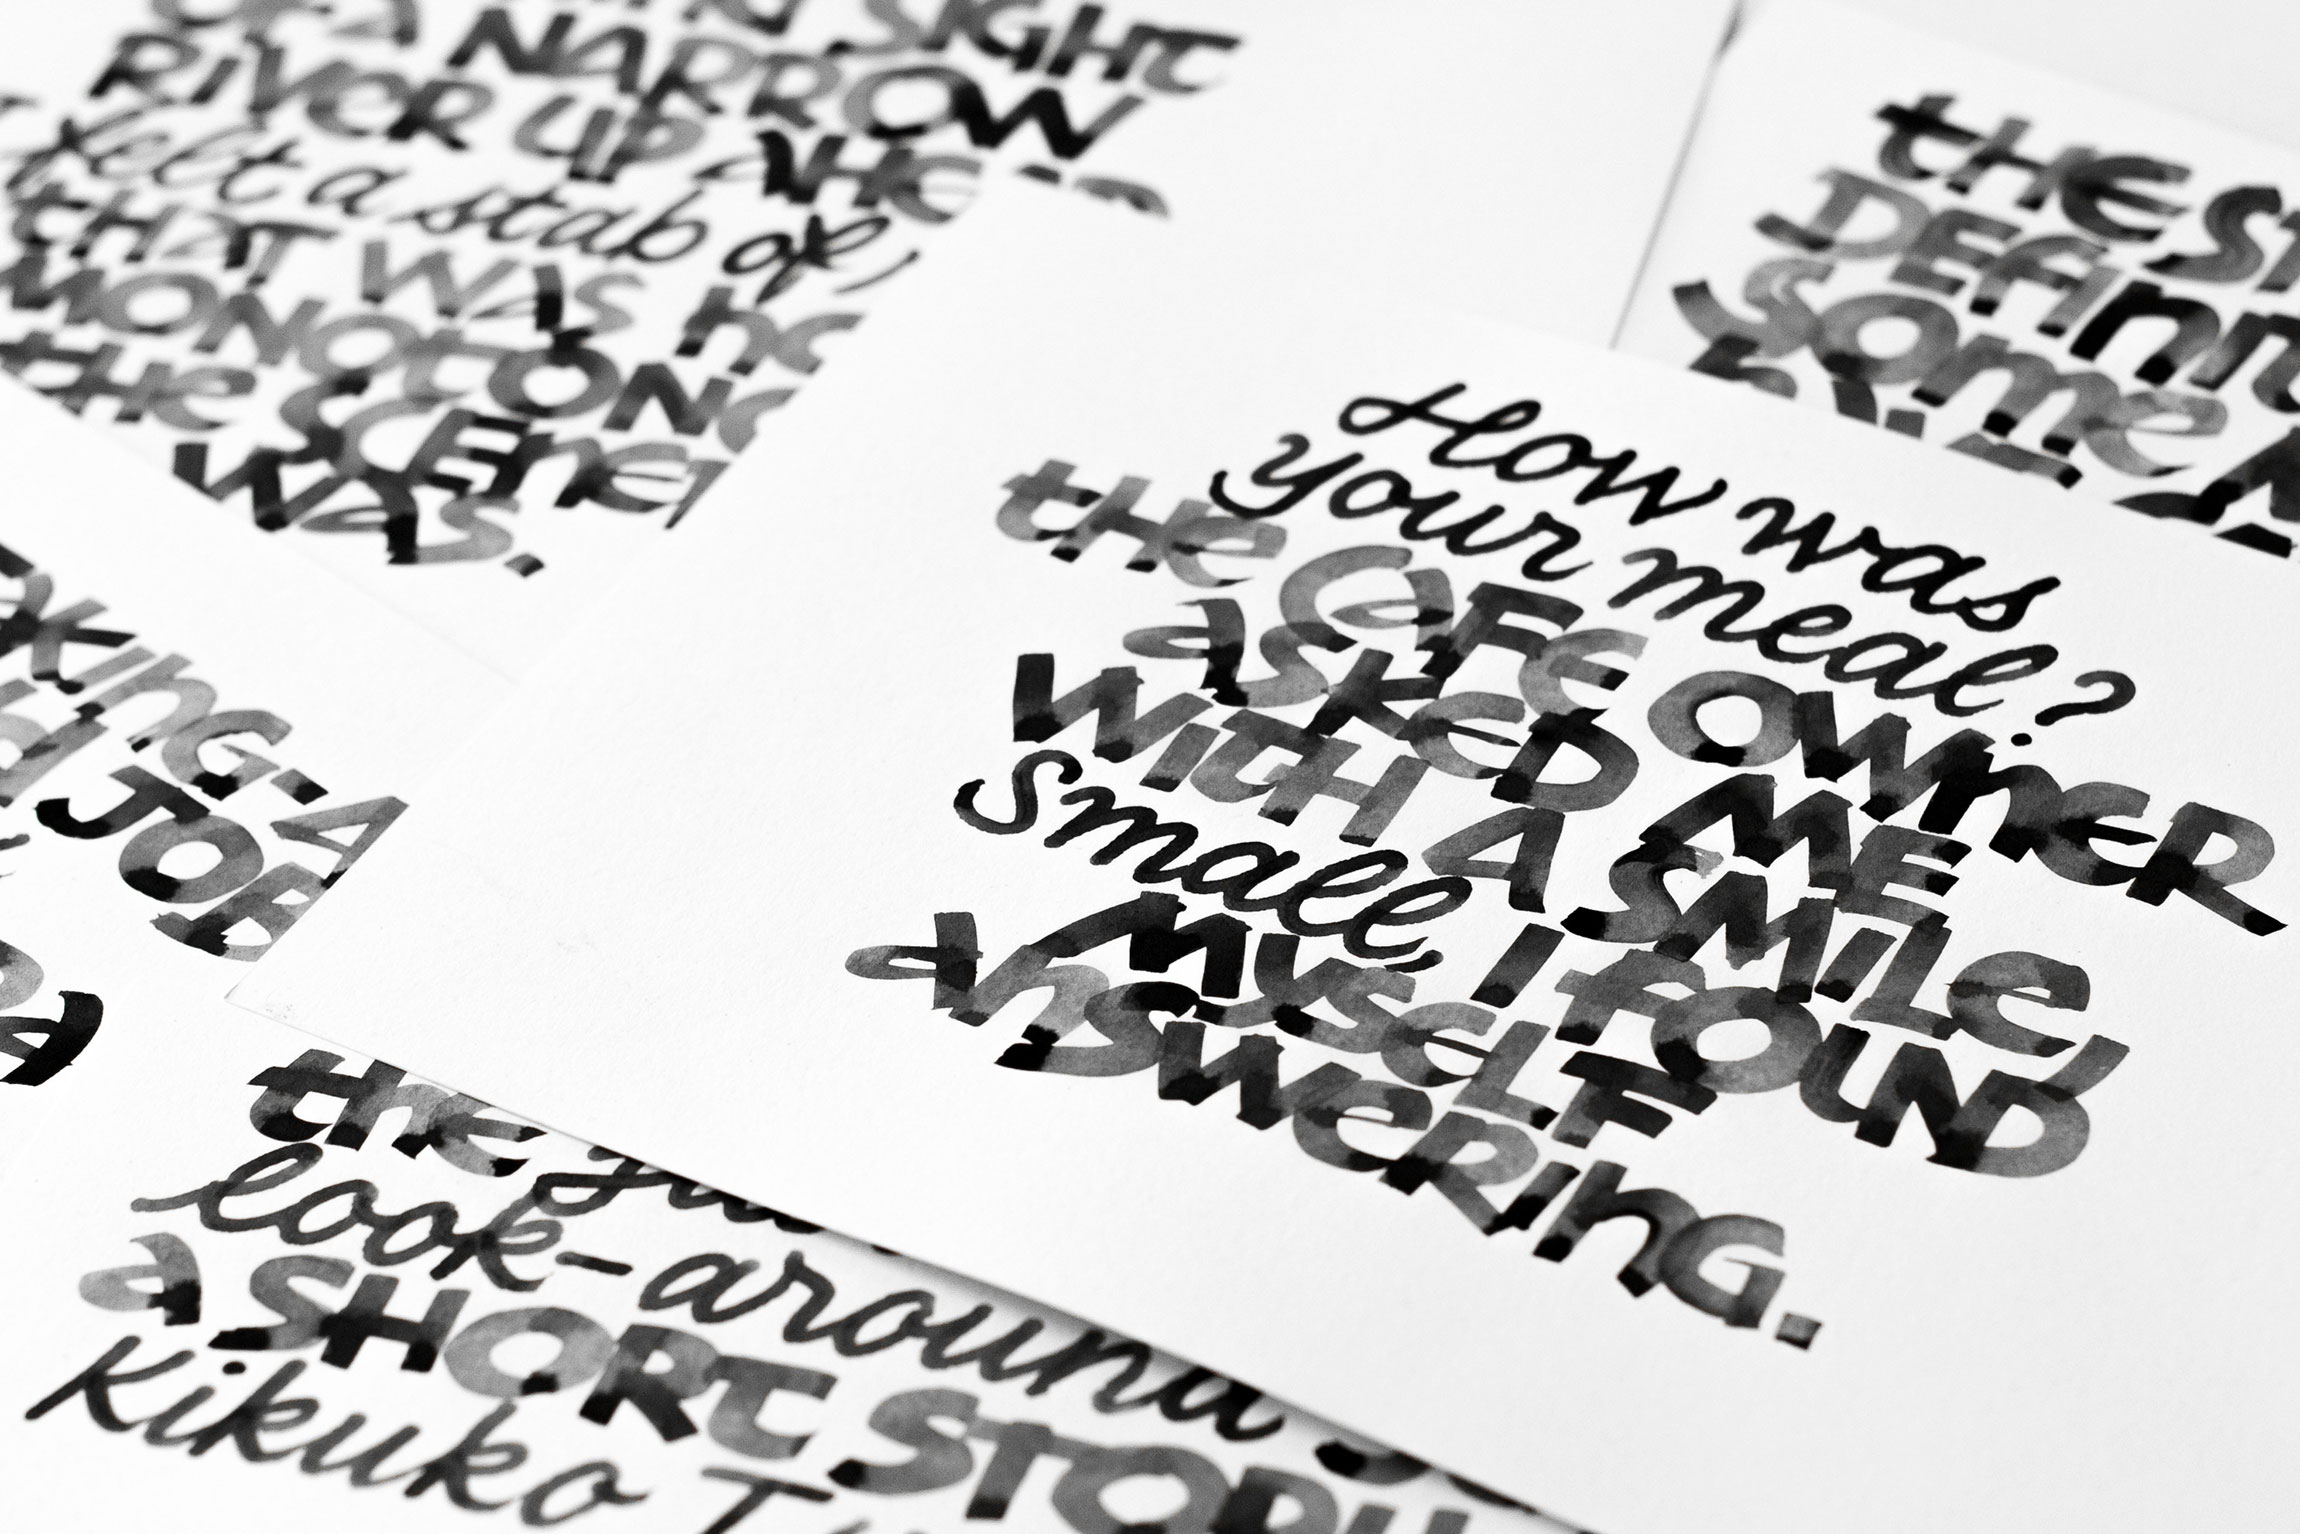 SIGHT
NARROW
RIVER UP AHE
felt a stab of
THAT WAS
MONOTON
THE SCENE
WAS.
THE
SOME
How was
your meal?
THE CAFE OWNER
ASKED ME
WITH A SMILE,
Small, I FOUND
MYSELF
ANSWERING.
KING-A
JOB
the
look-around
a SHORT STORY
Kikuko T